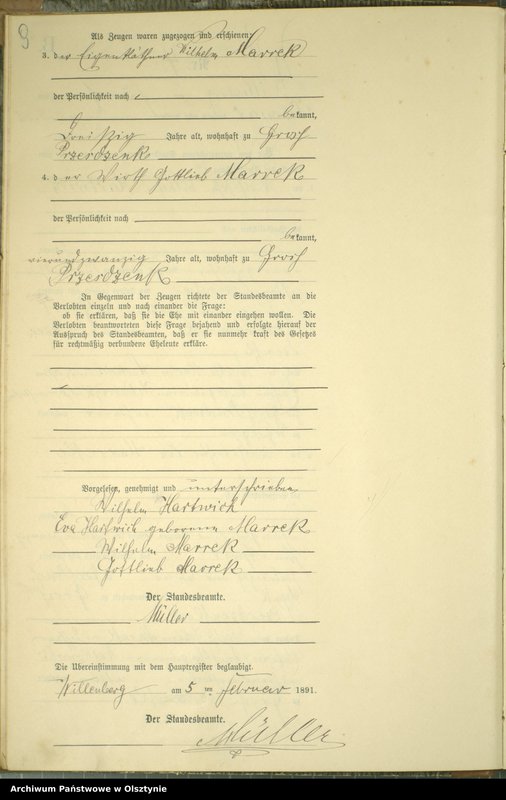 9
Als Zeugen waren zugezogen und erschienen:
3. der Eigenkäthner Wilhelm Marrek
der Persönlichkeit nach
bekannt,
dreißig Jahre alt, wohnhaft zu Groß
Przerdzenk
4. der Wirth Gottlieb Marrek
der Persönlichkeit nach
bekannt,
vierundzwanzig Jahre alt, wohnhaft zu Groß
Przerdzenk
In Gegenwart der Zeugen richtete der Standesbeamte an die
Verlobten einzeln und nach einander die Frage:
ob sie erklären, daß sie die Ehe mit einander eingehen wollen. Die
Verlobten beantworteten diese Frage bejahend und erfolgte hierauf der
Ausspruch des Standesbeamten, daß er sie nunmehr kraft des Gesetzes
für rechtmäßig verbundene Eheleute erkläre.
Vorgelesen, genehmigt und unterschrieben
Wilhelm Hartwich
Eva Hartwich geborene Marrek
Wilhelm Marrek
Gottlieb Marrek
Der Standesbeamte.
Müller
Die Übereinstimmung mit dem Hauptregister beglaubigt.
Willenberg am 5 ten Februar 1891.
Der Standesbeamte.
Müller
Archiwum Państwowe w Olsztynie